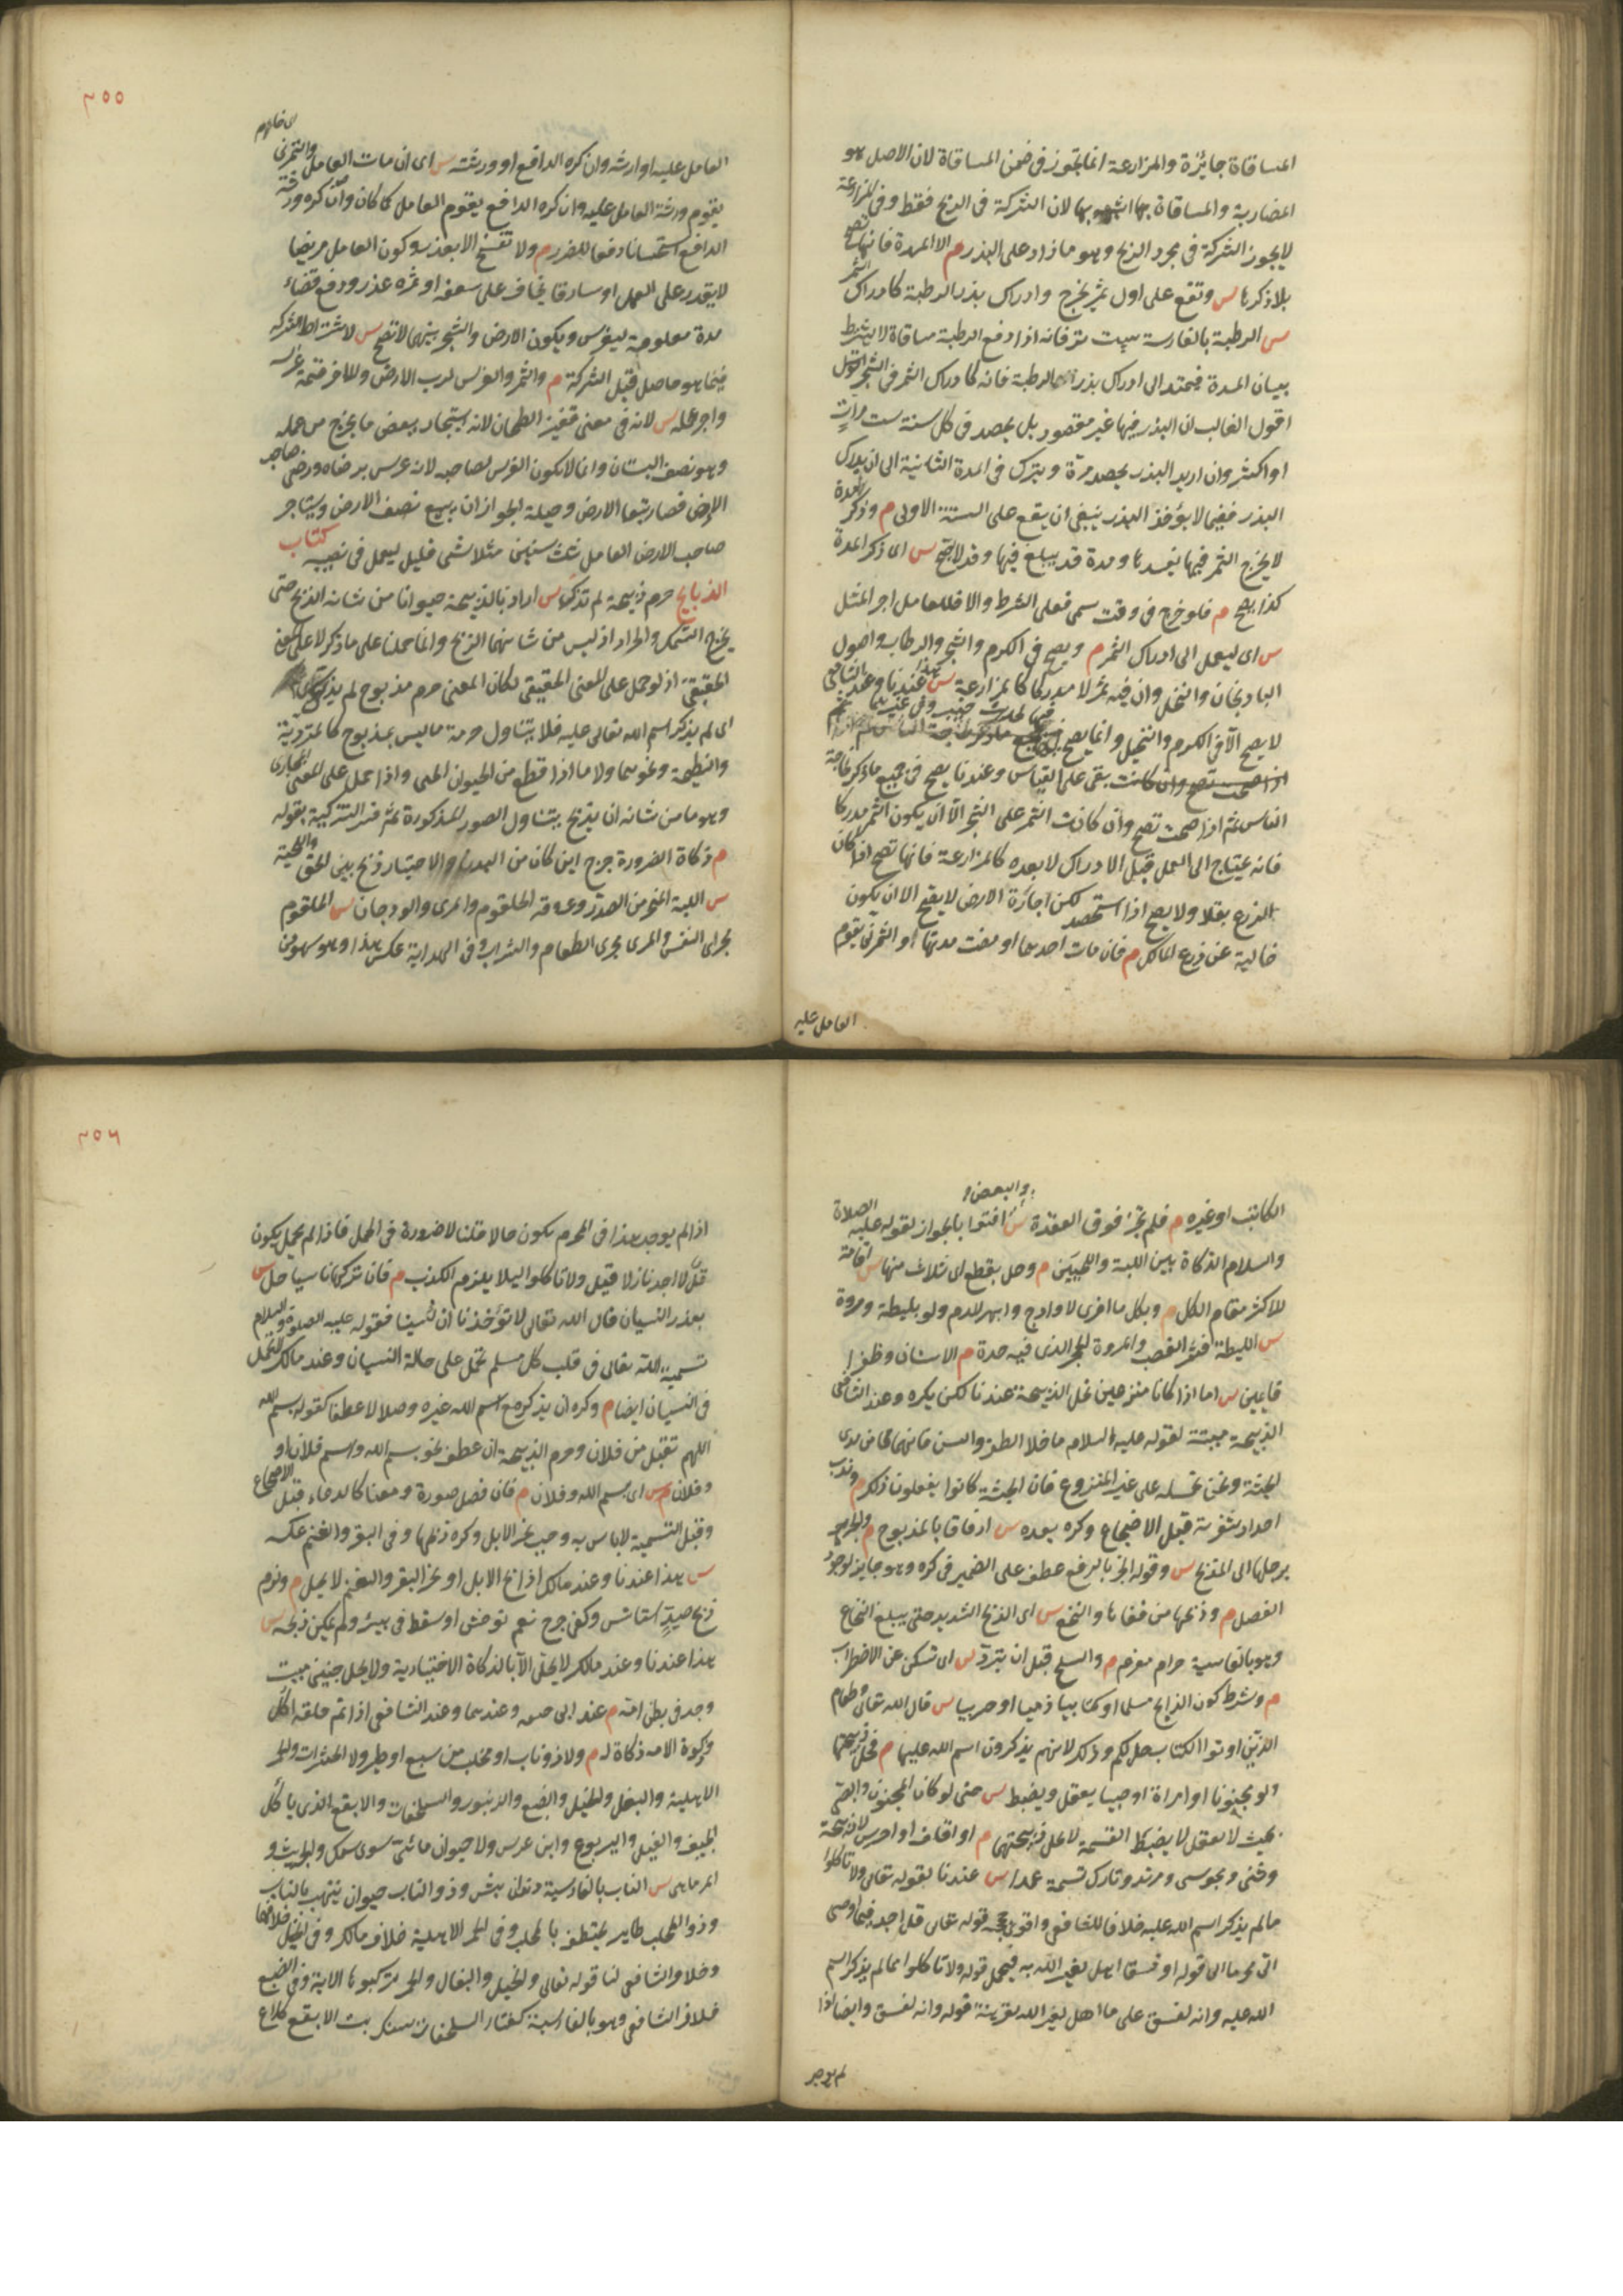 المساقاة جائزة والمزارعة انما تجوز فى ضمن المساقاة لان الاصل هو
المضاربة والمساقاة بها اشبه بها لان الشركة فى الربح فقط وفى المزارعة
لا يجوز الشركة فى مجرد الربح وهو ما زاد على البذر م الا المدة فانها تصح
بلا ذكرها س وتقع على اول ثمر يخرج وادراك بذر الرطبة كادراك الثمر
س الرطبة بالفارسية سپست تر فانه اذا دفع الرطبة مساقاة لا يشترط
بيان المدة فيمتد الى ادراك بذر الرطبة فانه كادراك الثمر فى الشجر
اقول الغالب ان البذر فيها غير مقصود بل يحصد فى كل سنة ست مرات
او اكثر وان اريد البذر يحصد مرة ويترك فى المدة الثانية الى ان يدرك
البذر ففيما لا يؤخذ البذر ينبغى ان يقع على السنة الاولى م وذكر مدة
لا يخرج الثمر فيها يفسدها ومدة قد يبلغ فيها وقد لا تصح س اى ذكر المدة
كذا يصح م فلو خرج فى وقت سمى فعلى الشرط والا فللعامل اجر المثل
س اى ليعمل الى ادراك الثمر م ويصح فى الكرم والشجر والرطاب واصول
الباذنجان والنخل وان فيه ثمر لا مدركا كالمزارعة س هذا عندنا وعند الشافعى
لا يصح الا فى الكرم والنخيل وانما يصح
تصح وان كانت بقى على القياس وعندنا يصح فى جميع ما ذكر لحاجة
الناس ثم اذا صحت تصح وان كانت الثمر على الشجر الا ان يكون الثمر مدركا
فانه يحتاج الى العمل قبل الادراك لا بعده كالمزارعة فانها تصح اذا كان
الزرع بقلا ولا يصح اذا استحصد لكن اجارة الارض لا يصح الا ان يكون
خالية عن زرع المالك م فان مات احدهما او مضت مدتها او الثمر نى يقوم
العامل عليه
٢٥٥
العامل عليه او وارثه وان كره الدافع او ورثته س اى ان مات العامل والثمر نى
يقوم ورثة العامل عليه وان كره الدافع يقوم العامل كما كان وان كره ورثة
الدافع استحسانا دفعا للضرر م ولا تفسخ الا بعذر وكون العامل مريضا
لا يقدر على العمل او سارقا يخاف على سعفه او ثمره عذر ودفع فضاء
مدة معلومة ليغرس ويكون الارض والشجر بينهما لا تصح س لاشتراط الشركة
فيما هو حاصل قبل الشركة م والثمر والغرس لرب الارض وللآخر قيمة غرسه
واجر عمله س لانه فى معنى قفيز الطحان لانه استيجار ببعض ما يخرج من عمله
وهو نصف البستان وانما لا يكون الغرس لصاحبه لانه غرس برضاه ورضى صاحب
الارض فصار تبعا للارض وحيلة الجواز ان يبيع نصف الارض ويستاجر
صاحب الارض العامل ثلث سنين مثلا بشى قليل ليعمل فى نصيبه كتاب
الذبايح حرم ذبيحة لم تذك س اراد بالذبيحة حيوانا من شانه الذبح حتى
يخرج السمك والجراد اذ ليس من شانهما الذبح وانما حملنا على ما ذكر لا على المعنى
الحقيقى اذ لو حمل على المعنى الحقيقى لكان المعنى حرم مذبوح لم يذك
اى لم يذكر اسم الله تعالى عليه فلا يتناول حرمة ما ليس بمذبوح كالمتردية
والنطيحة ونحوهما ولا ما اذا قطع من الحيوان الحى واذا حمل على المعنى المجازى
وهو ما من شانه ان يذبح يتناول الصور المذكورة ثم فسر التزكية بقوله
م ذكاة الضرورة جرح اين كان من البدن والاختيار ذبح بين الحلق واللبة
س اللبة المنحر من الصدر وعروقه الحلقوم والمرى والودجان س الحلقوم
مجرى النفس والمرى مجرى الطعام والشراب وفى الهداية عكس هذا وهو سهو من
الكاتب او غيره م فلم يجز فوق العقدة س والبعض افتوا بالجواز لقوله عليه الصلاة
والسلام الذكاة بين اللبة واللحيين م وحل بقطع اى ثلاث منها س اقامة
للاكثر مقام الكل م وبكل ما افرى الاوداج وانهر الدم ولو بليطة ومروة
س الليطة قشر القصب والمروة الحجر الذى فيه حدة م الا سنا وظفرا
قايمين س اما اذا كانا منزوعين تحل الذبيحة عندنا لكن يكره وعند الشافعى
الذبيحة ميتة لقوله عليه السلام ما خلا الظفر والسن فانهما مدى
الحبشة ونحن نحمله على غير المنزوع فان الحبشة كانوا يفعلون ذلك م وندب
احداد شفرته قبل الاضجاع وكره بعده س ارفاقا بالمذبوح م والجر
برجلها الى المذبح س وقوله الجر بالرفع عطف على الضمير فى كره وهو جايز لوجود
الفصل م وذبحها من قفاها والنخع س اى الذبح الشديد حتى يبلغ النخاع
وهو بالفارسية حرام مغز م والسلخ قبل ان تبرد س اى تسكن عن الاضطراب
م وشرط كون الذابح مسلما او كتابيا ذميا او حربيا س قال الله تعالى وطعام
الذين اوتوا الكتاب حل لكم وذلك لانهم يذكرون اسم الله عليها م فحل ذبيحتها
ولو مجنونا او امراة او صبيا يعقل ويضبط س حتى لو كان المجنون والصبى
بحيث لا يعقل لا يضبط التسمية لا تحل ذبيحتهما م او اقلف او اخرس لا ذبيحة
وثنى ومجوسى ومرتد وتارك تسمية عمدا س عندنا لقوله تعالى ولا تاكلوا
مما لم يذكر اسم الله عليه خلافا للشافعى واقوى حجته قوله تعالى قل لا اجد فيما اوحى
الى محرما الى قوله او فسقا اهل لغير الله به فيحمل قوله ولا تاكلوا مما لم يذكر اسم
الله عليه وانه لفسق على ما اهل لغير الله بقرينة قوله وانه لفسق وايضا اذا
لم يوجد
٢٥٦
اذا لم يوجد هذا فى المحرم يكون حالا قلنا لا ضرورة فى الحمل فاذا لم يحمل يكون
قل لا اجد نازلا قبل ولا تاكلوا ليلا يلزم الكذب م فان تركها ناسيا حل س
بعذر النسيان قال الله تعالى لا تؤخذنا ان نسينا فقوله عليه الصلوة والسلام
تسمية الله تعالى فى قلب كل مسلم يحمل على حالة النسيان وعند مالك لا تحل
فى النسيان ايضا م وكره ان يذكر مع اسم الله غيره وصلا لا عطفا كقوله بسم الله
اللهم تقبل من فلان وحرم الذبيحة ان عطف نحو بسم الله واسم فلان او
وفلان م س اى بسم الله وفلان م فان فصل صورة ومعنا كالدعاء قبل الاضجاع
وقبل التسمية لا باس به وحب نحر الابل وكره ذبحها وفى البقر والغنم عكسه
س هذا عندنا وعند مالك اذا ذبح الابل او نحر البقر والغنم لا يحل م ولزم
ذبح صيد استانس وكفى جرح نعم توحش او سقط فى بير ولم يمكن ذبحه س
هذا عندنا وعند مالك لا يحل الا بالذكاة الاختيارية ولا يحل جنين ميت
وجد فى بطن امه م عند ابى حنيفه وعندهما وعند الشافعى اذا تم خلقه اكل
وذكوة الام ذكاة له م ولا ذو ناب او مخلب من سبع او طير ولا الحشرات والحمر
الاهلية والبغل والخيل والضبع والزنبور والسلحفات والابقع الذى ياكل
الجيف والفيل واليربوع وابن عرس ولا حيوان مائى سوى سمك والجريث و
المرماهى س الناب بالفارسية دندان نيش وذو الناب حيوان ينتهب بالناب
وذو المخلب طاير يختطف بالمخلب وفى الحمر الاهلية خلاف مالك وفى الخيل خلافهما
وخلاف الشافعى لنا قوله تعالى والخيل والبغال والحمر لتركبوها الاية وفى الضبع
خلاف الشافعى وهو بالفارسية كفتار السلحفات سنك پشت الابقع كلاغ